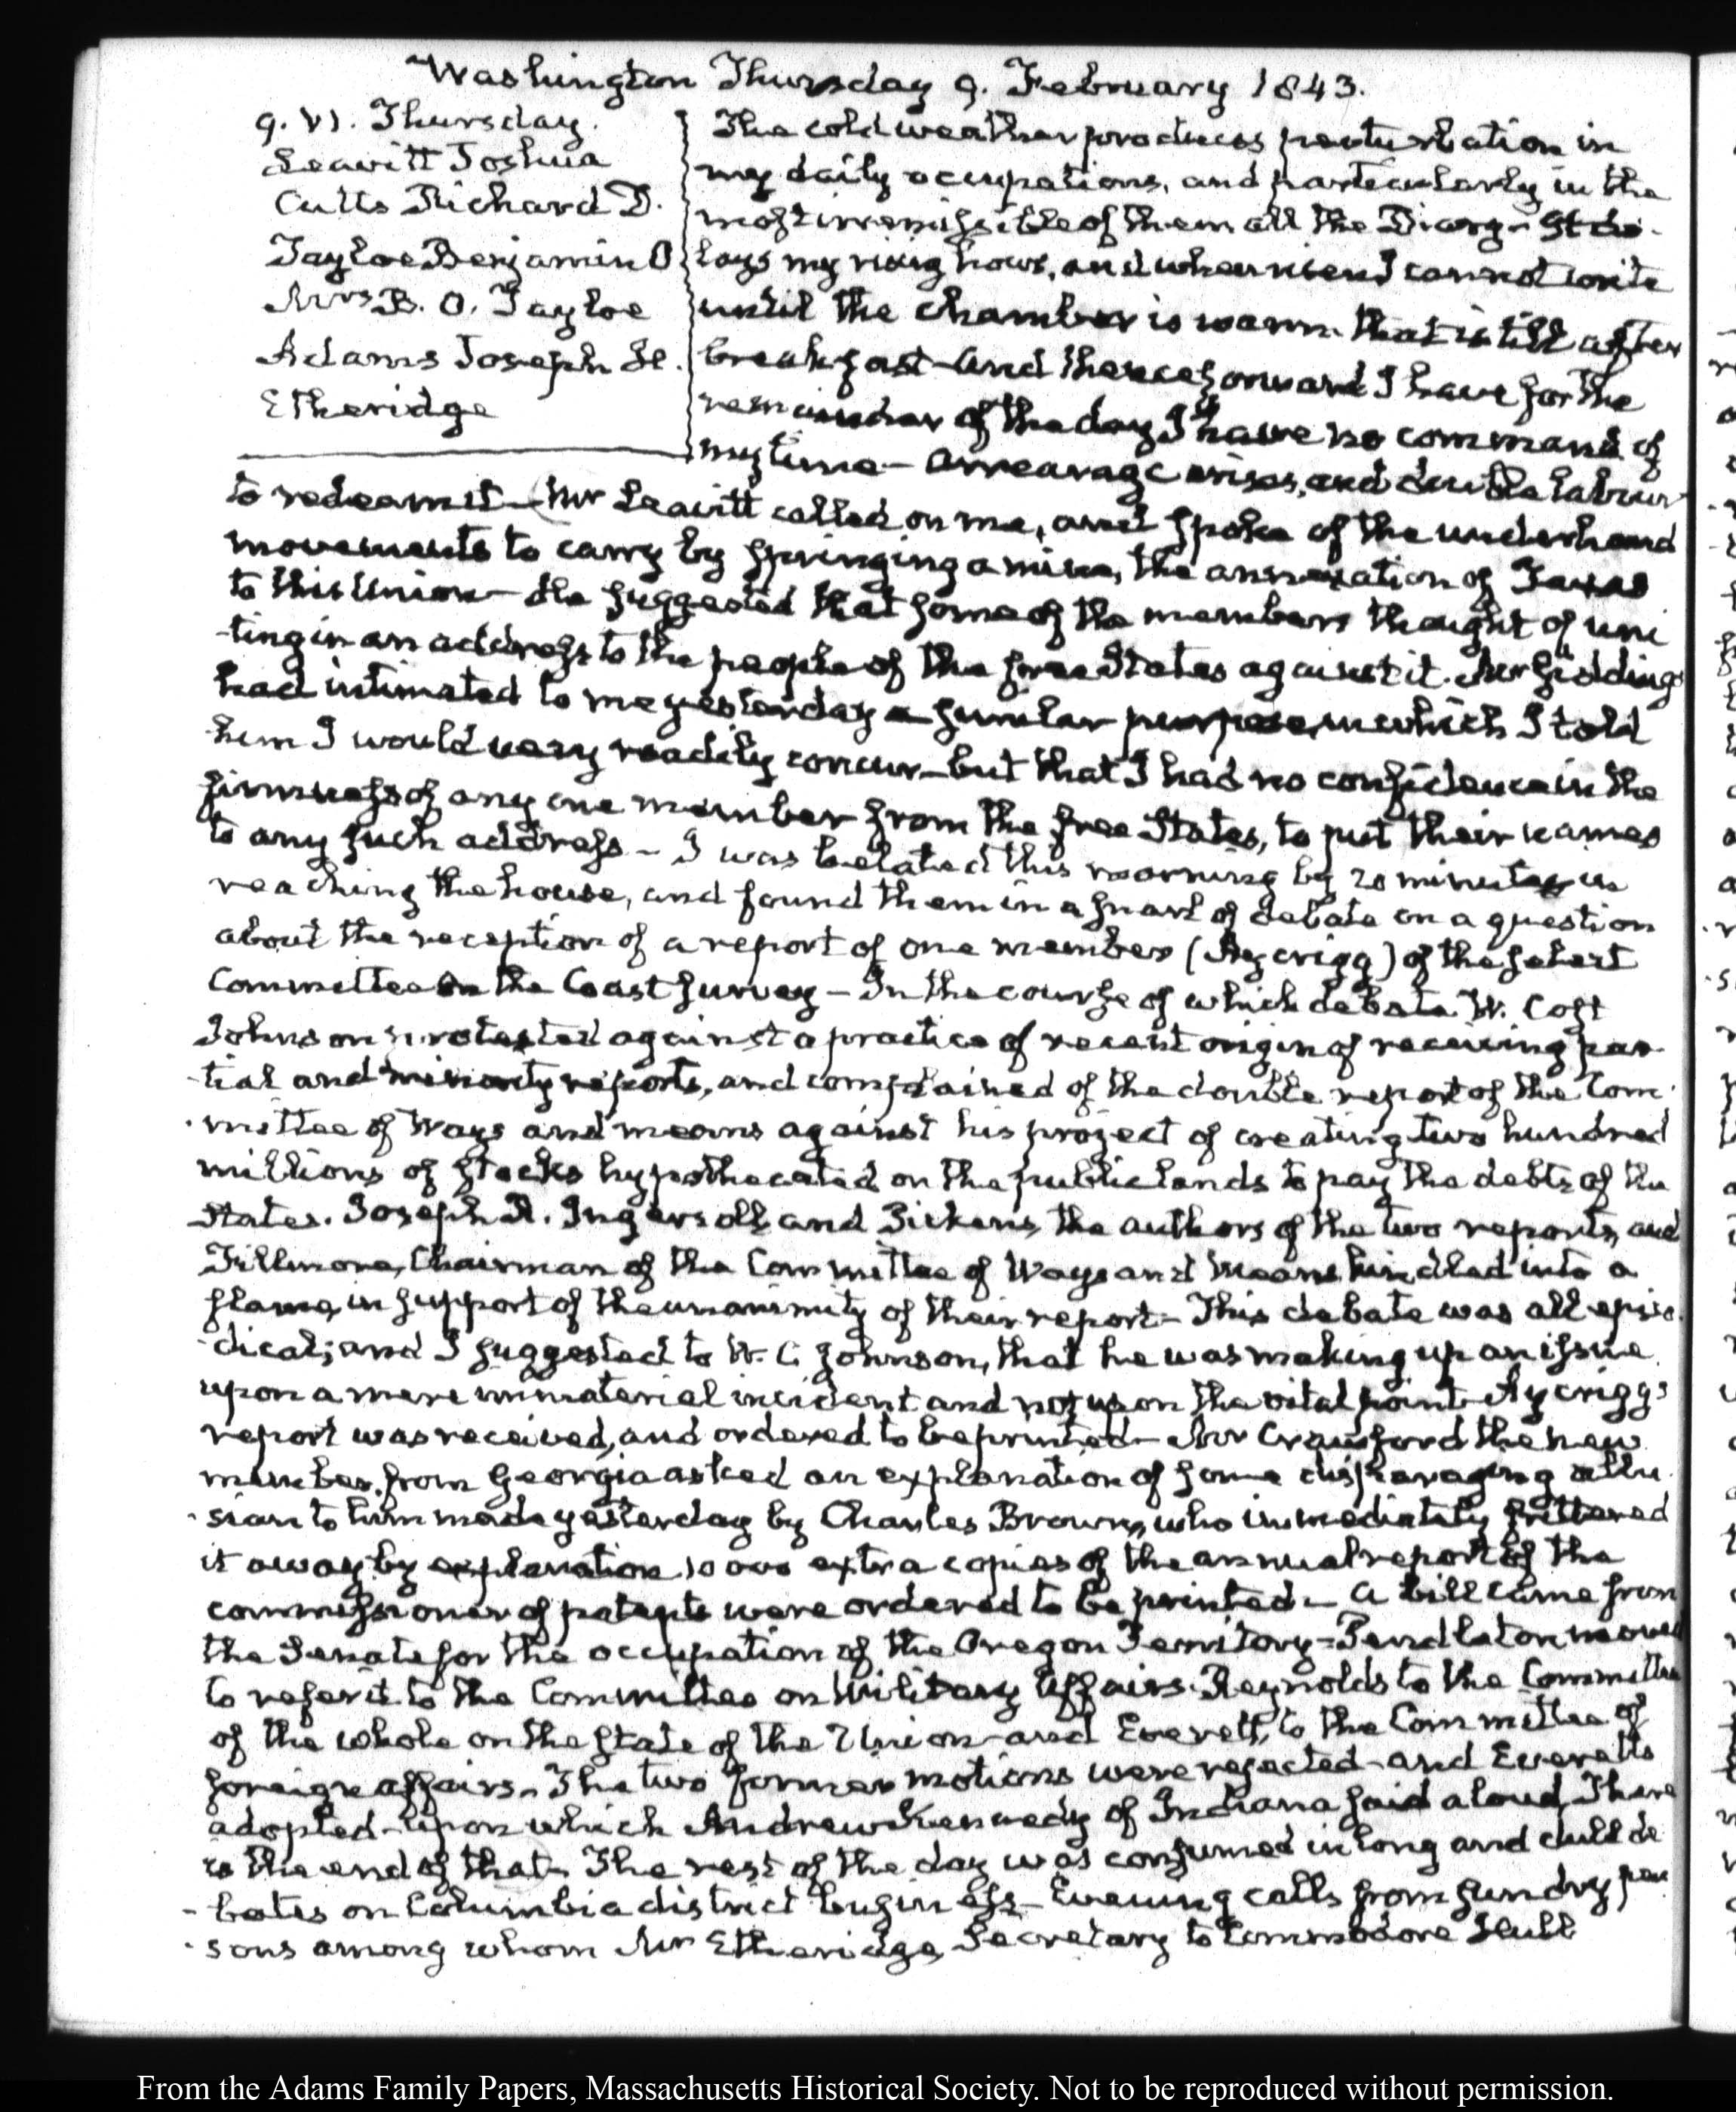 Washington Thursday 9. February 1843.
9. VI. Thursday.
Leavitt Joshua
Cutts Richard D.
Tayloe Benjamin O
Mrs B. O. Tayloe
Adams Joseph H.
Etheridge
The cold weather produces perturbation in
my daily occupations, and particularly in the
most irremissible of them all the Diary - It de-
lays my rising hour, and when risen I cannot write
until the chamber is warm. that is till after
breakfast - And thenceforward I have for the
remainder of the day I have no command of
my time - Arrearage arises, and double labour
to redeem it - Mr Leavitt called on me, and spoke of the underhand
movements to carry by springing a mine, the annexation of Texas
to this Union - He suggested that some of the members thought of uni
-ting in an address to the people of the free States against it. Mr Giddings
had intimated to me yesterday a similar purpose, in which I told
him I would very readily concur - but that I had no confidence in the
firmness of any one member from the free States, to put their names
to any such address - I was belated this morning by 20 minutes in
reaching the house, and found them in a snarl of debate on a question
about the reception of a report of one member (Aycrigg) of the select
Committee on the Coast survey - In the course of which debate W. Cost
Johnson protested against a practice of recent origin of receiving par-
-tial and minority reports, and complained of the double report of the Com-
-mittee of Ways and means against his project of creating two hundred
millions of stocks hypothecated on the public lands to pay the debts of the
States. Joseph R. Ingersoll and Pickens, the authors of the two reports, and
Fillmore, Chairman of the Committee of Ways and Means kindled into a
flame, in support of the unanimity of their report - This debate was all episo-
-dical; and I suggested to W. C. Johnson, that he was making up an issue
upon a mere immaterial incident and not upon the vital point - Aycrigg's
report was received, and ordered to be printed - Mr Crawford the new
member from Georgia asked an explanation of some disparaging allu-
-sion to him made yesterday by Charles Brown, who immediately frittered
it away by explanation 10000 extra copies of the annual report of the
commissioner of patents were ordered to be printed - A bill came from
the Senate for the occupation of the Oregon Territory - Pendleton moved
to refer it to the Committee on Military Affairs. Reynolds to the Committee
of the whole on the state of the Union - and Everett, to the Committee of
foreign affairs. The two former motions were rejected - and Everetts
adopted - upon which Andrew Kennedy of Indiana said aloud, There
is the end of that. The rest of the day was consumed in long and dull de
-bates on Columbia district business - Evening calls from sundry per
-sons among whom Mr Etheridge, Secretary to Commodore Hull
From the Adams Family Papers, Massachusetts Historical Society. Not to be reproduced without permission.